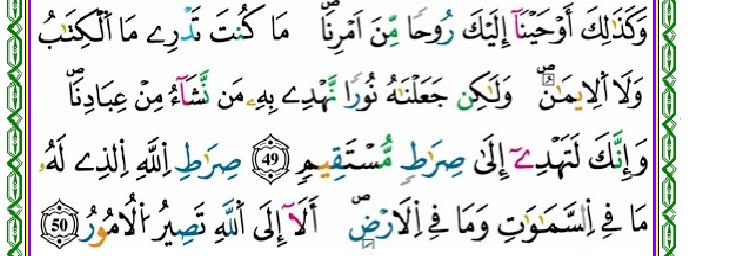 وَكَذَٰلِكَ أَوْحَيْنَآ إِلَيْكَ رُوحًا مِّنَ اَمْرِنَا مَا كُنتَ تَدْرِے مَا اَلْكِتَٰبُ
وَلَا اَلِايمَٰنُ وَلَٰكِن جَعَلْنَٰهُ نُورًا نَّهْدِے بِهِۦ مَن نَّشَآءُ مِنْ عِبَادِنَا
وَإِنَّكَ لَتَهْدِےٓ إِلَىٰ صِرَٰطٍ مُّسْتَقِيمٍ 49 صِرَٰطِ اِللَّهِ اِلذِے لَهُۥ
مَا فِے اِلسَّمَٰوَٰتِ وَمَا فِے اِلَارْضِ أَلَآ إِلَى اَللَّهِ تَصِيرُ اُلُامُورُ 50